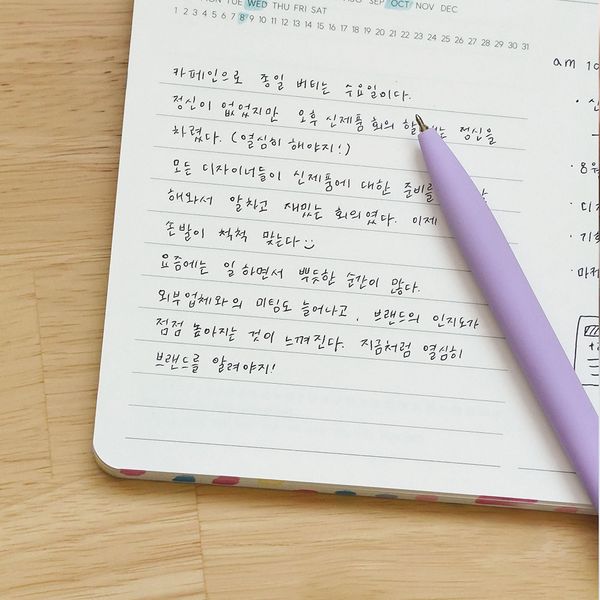 TUE WED THU FRI SAT
SEP OCT NOV DEC
1 2 3 4 5 6 7 8 9 10 11 12 13 14 15 16 17 18 19 20 21 22 23 24 25 26 27 28 29 30 31
카페인으로 종일 버티는 수요일이다.
정신이 없었지만 오후 신제품 회의 할 는 정신을
차렸다. (열심히 해야지!)
모든 디자이너들이 신제품에 대한 준비를
해와서 알차고 재밌는 회의였다. 이제
손발이 척척 맞는다
요즘에는 일하면서 뿌듯한 순간이 많다.
외부업체와의 미팅도 늘어나고, 브랜드의 인지도가
점점 높아지는 것이 느껴진다. 지금처럼 열심히
브랜드를 알려야지!
am 10
· 8월
· 디
· 기
· 마케